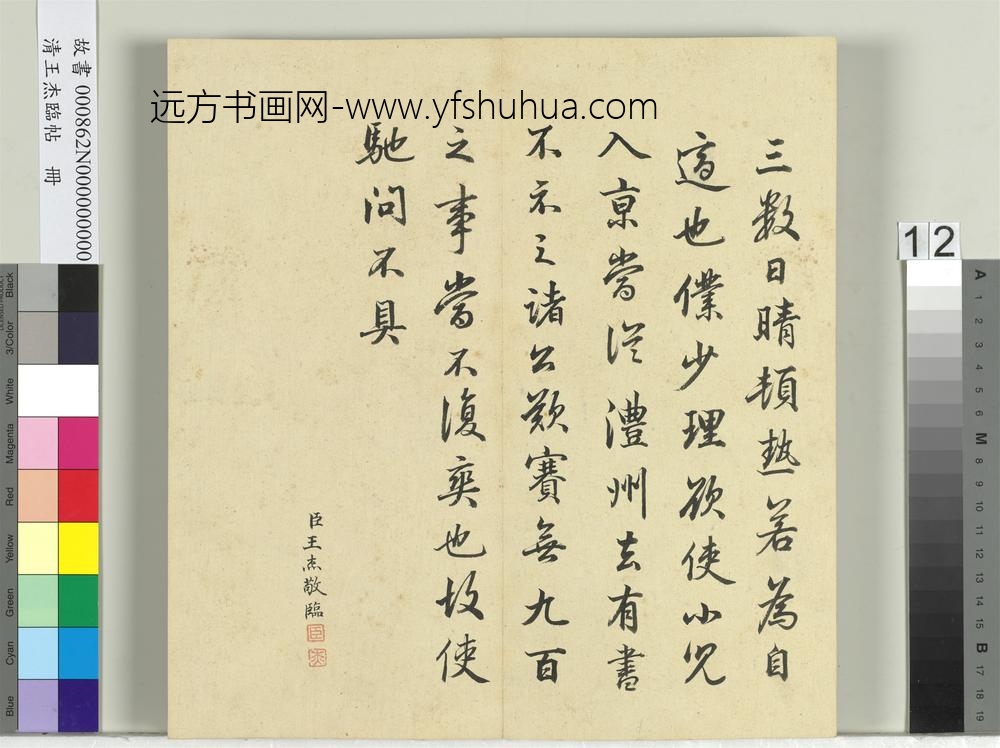 远方书画网-www.yfshuhua.com
故書 000862N000000000
清王杰臨帖 冊
三數日晴頓熱若為自
適也僕少理欲使小兒
入京當從澧州去有書
不示之諸公歎賽無九百
之事當不復奕也故使
馳問不具
臣王杰敬臨
臣
12
Black
3/Color
White
Magenta
Red
Yellow
Green
Cyan
Blue
A
1
2
3
4
5
6
M
8
9
10
11
12
13
14
15
B
17
18
19